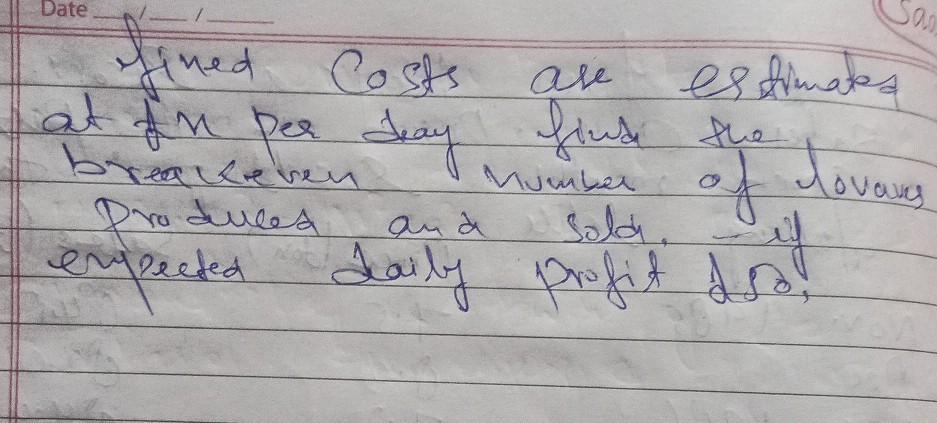 Date __/__/____
fixed Costs are estimated
at per day find the
breakeven number of
produced and sold. if
expected daily profit